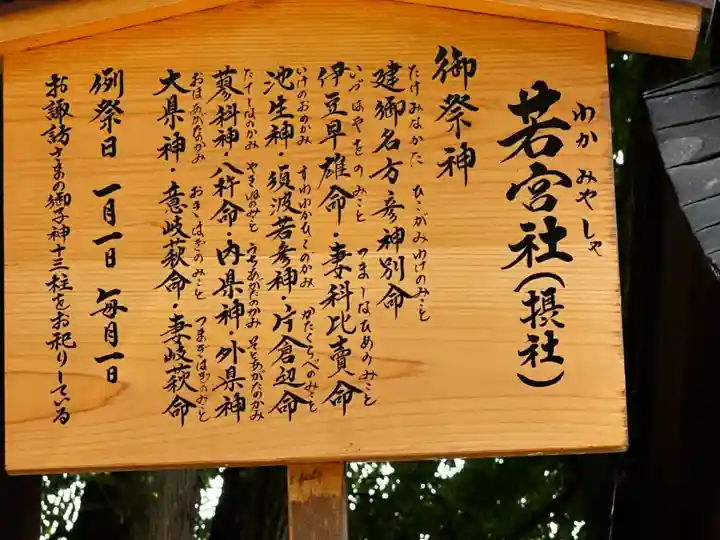 わかみやしゃ
若宮社(摂社)
御祭神
たけみなかた ひこがみわけのみこと
建御名方彦神別命
いづはやをのみこと つましなひめのみこと
伊豆早雄命・妻科比賣命
いけのおのかみ すわわかひこのかみ かたくらべのみこと
池生神・須波若彦神・片倉辺命
たてしなのかみ やきねのみこと うちあがたのかみ そとあがたのかみ
蓼科神・八杵命・内県神・外県神
おほあがたのかみ おきはぎのみこと つまぎはぎのみこと
大県神・意岐萩命・妻岐萩命
例祭日 一月一日 毎月一日
お諏訪さまの御子神十三柱をお祀りしている